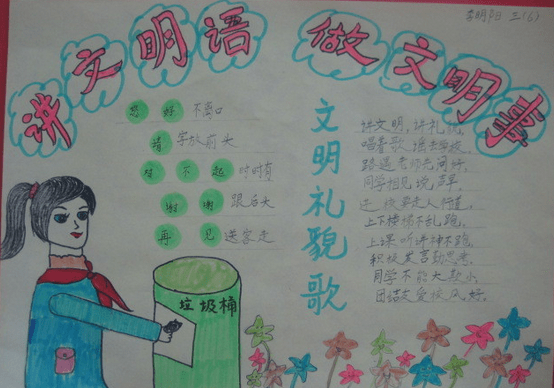 讲文明语 做文明事
李明阳 三(6)
您好不离口
请字放前头
对不起时时有
谢谢跟后头
再见送客走
垃圾桶
文明礼貌歌
讲文明,讲礼貌,
唱着歌谣去学校,
路遇老师先问好,
同学相见说声早,
上下楼梯不乱跑,
上课听讲神不跑,
积极发言勤思考,
同学不能大欺小,
团结友爱校风好。